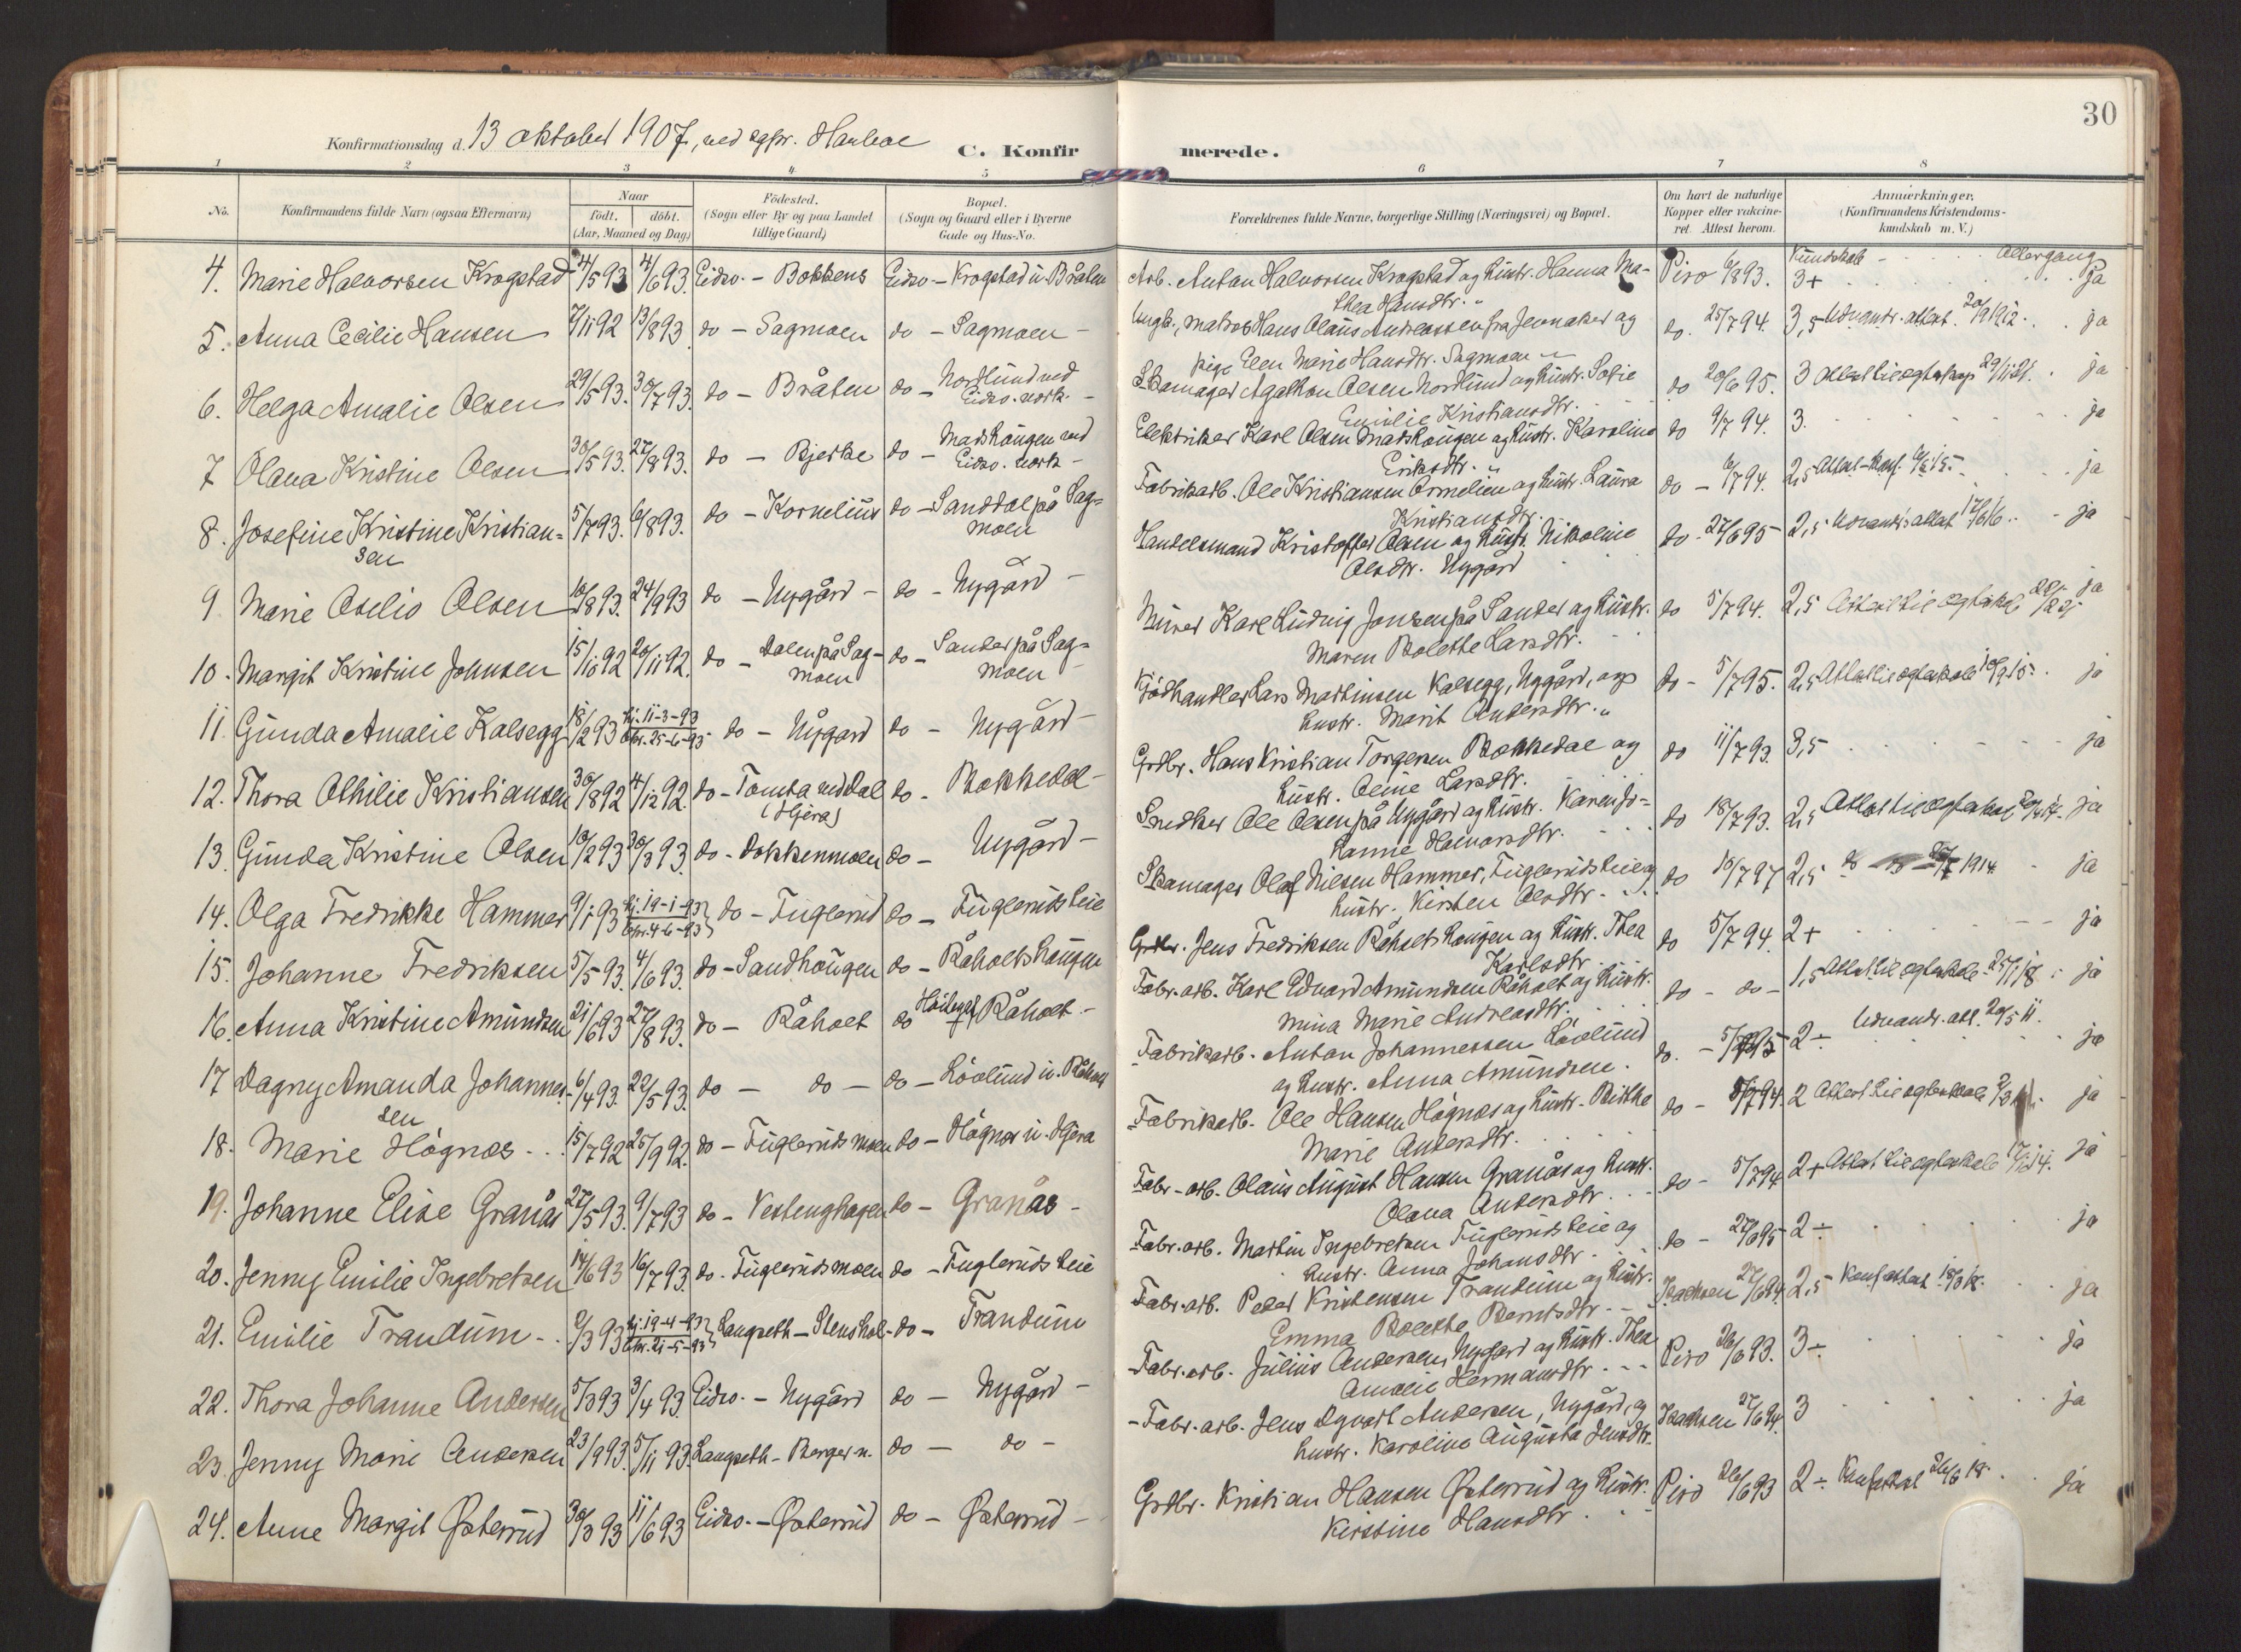 30
Konfirmationsdag d. 13 oktober 1907, ved sgpr.
C. Konfirmerede.
1 2 3 4 5 6 7 8
No.
Konfirmandens fulde Navn (ogsaa Efternavn)
Naar
födt. döbt.
(Aar, Maaned og Dag)
Födested.
(Sogn eller By og paa Landet
tillige Gaard)
Bopæl.
(Sogn og Gaard eller i Byerne
Gade og Hus-No.
Forældrenes fulde Navne, borgerlige Stilling (Næringsvei) og Bopæl.
Om havt de naturlige
Kopper eller vaccine-
ret. Attest herom.
Anmærkninger,
(Konfirmandens Kristendoms-
kundskab m. V.)
Kundskab - Altergang
4. Marie Halvorsen Krogstad 4/5 93 4/6 93. Eidsv. - Bokkens Eidsv. - Krogstad u. Bråten Arb. Anton Halvorsen Krogstad og hustr. Hanna Ma- Piro 6/8 93. 3+ ja
thea Hansdtr.
5. Anna Cecilie Hansen 7/11 92 13/8 93. do - Sagmoen do - Sagmoen - Ungk., matros Hans Olaus Andreassen fra Jevnaker og do. 25/7 94. 3,5 Udvandr. attest. 20/9 1912. ja
pige Elen Marie Hansdtr. Sagmoen
6. Helga Amalie Olsen 29/5 93. 30/7 93. do - Bråten do - Nordlund ved Skomager Agathon Olsen Nordlund og hustr. Sofie do 20/6 95. 3 Attest til ægteskap 29/11 21. ja
Eidsv. verk. - Emilie Kristiansdtr.
7 Olava Kristine Olsen 30/5 93. 27/8 93. do - Bjerke do - Madshaugen ved Elektriker Karl Olsen Madshaugen og hustr. Karoline do 9/7 94. 3. ja
Eidsv. verk - Eriksdtr.
8. Josefine Kristine Kristian= 5/7 93. 6/8 93. do - Kornelius do - Sanddal på Sag= Fabrikarb. Ole Kristiansen Ornelien og hustr. Laura do - 6/7 94. 2,5 ja
sen moen Kristiansdtr.
9. Marie Oselie Olsen 10/8 93. 24/9 93 do - Nygård - do - Nygård - Handelsmand Kristoffer Olsen og hustr. Nikoline do - 27/6 95 2,5 Udvandr. attest 17/6 16. ja
Olsdtr. Nygård
10. Margit Kristine Johnsen 15/10 92 20/11 92. do - Dalen på Sag- do - Sander på Sag= Murer Karl Ludvig Jonsen på Sander og hustr. do 5/7 94. 2,5 Attest til ægteskab ja
moen moen Maren Bolette Larsdtr.
11. Gunda Amalie Kalsegg 18/2 93 hj. 11-3-93 do - Nygård do - Nygård - Kjödhandler Lars Martinsen Kalsegg, Nygård, og do - 5/7 95. 2,5 Attest til ægteskab 10/9 15. ja
fr. 25-6-93 hustr. Marit Andersdtr.
12. Thora Othilie Kristiansen 30/8 92 4/12 92. do - Tomta ved Dal do - Bokkedal - Grdbr. Hans Kristian Torgersen Bokkedal og do 11/7 93. 3,5 ja
(Hjera) hustr. Oline Larsdtr.
13. Gunda Kristine Olsen 10/2 93 30/3 93. do - Dokkenmoen do - Nygård - Snedker Ole Olsen på Nygård og hustr. Karen Jo= do 18/7 93. 2,5 Attest til ægteskab ja
hanne Halvorsdtr.
14. Olga Fredrikke Hammer 9/1 93 hj. 19-1-93 do - Fuglerud do - Fugleruds Eie Skomager Olaf Nilsen Hammer, Fugleruds eie og do 10/7 97 2,5 do 1914 ja
fr. 4-6-93 hustr. Kirsten Olsdtr.
15. Johanne Fredriksen 5/5 93. 4/6 93. do - Sandhougen do - Råholtshougen Grdbr. Jens Fredriksen Råholtshougen og hustr. Thea do 5/7 94. 2+ ja
Karlsdtr.
16. Anna Kristine Amundsen 21/6 93 27/8 93. do - Råholt do Råholt. - Fabr. arb. Karl Edvard Amundsen Råholt og hustr. do - do - 1,5 Attest til ægteskab - 25/1 18. ja
Mina Marie Andreasdtr.
17 Dagny Amanda Johannes- 6/4 93. 22/5 93. do - do - do - Lövlund u. Råholt Fabrikarb. Anton Johannessen Lövlund do. - 2÷ Udvandr. att. 20/5 11. ja
sen og hustr. Anna Amundsen.
18. Marie Högnæs 15/7 92 25/9 92. do - Fugleruds moen do - Högnæs u. Hjera Fabrikarb. Ole Hansen Högnæs og hustr. Birthe do - 5/7 94. 2 Attest til ægteskab ja
Marie Andersdtr.
19. Johanne Elise Granås 27/5 93. 9/7 93 do - Vestenghagen do - Granås - Fabr. - arb. Olaus August Hansen Granås og hustr. do - 5/7 94 2+ Attest til ægteskab ja
Olava Andersdtr.
20. Jenny Emilie Ingebretsen 14/6 93 16/7 93. do. Fuglerudsmoen do - Fugleruds Eie Fabr. arb. Martin Ingebretsen Fugleruds Eie og do - 27/6 95 2÷ ja
hustr. Anna Johansdtr
21. Emilie Trandum 2/3 93 hj. 19-4-93 Langseth - Stenshol- do - Trandum Fabr. arb. Peder Kristensen Trandum og hustr. Isachsen 27/6 94. 2,5 Konf. attest ja
fr. 21-5-93 Emma Bolette Berntsdtr
22. Thora Johanne Andersen 5/3 93 3/4 93. Eidsv. - Nygård do - Nygård - Fabr. arb. Julius Andersen, Nygård og hustr. Thea Piro 26/6 93. 3÷ ja
Amalie Hermansdtr
23. Jenny Marie Andersen 23/9 93. 5/11 93. Langseth - Berger n. do - do - Fabr. arb. Jens Agvart Andersen, Nygård, og Isachsen 27/6 94. 3 ja
hustr. Karoline Augusta Jensdtr.
24. Anne Margit Østerud 30/3 93 11/6 93 Eidsv. - Østerud do - Østerud - Grdbr. Kristian Hansen Østerud og hustr. Piro 26/6 93 2÷ Konf. attest 26/6 18. ja
Kirstine Hansdtr.